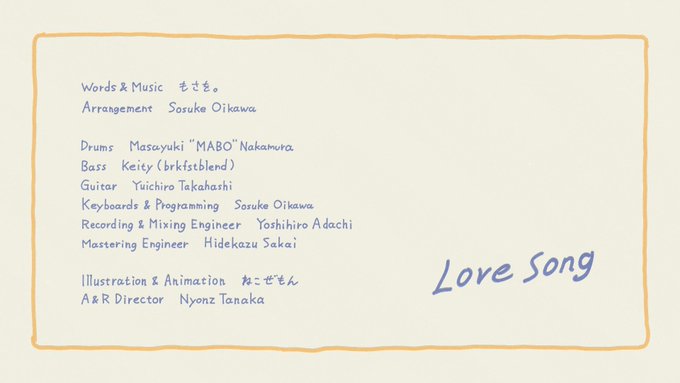 Words & Music もさを。
Arrangement Sosuke Oikawa
Drums Masayuki "MABO" Nakamura
Bass Keity (brkfstblend)
Guitar Yuichiro Takahashi
Keyboards & Programming Sosuke Oikawa
Recording & Mixing Engineer Yoshihiro Adachi
Mastering Engineer Hidekazu Sakai
Illustration & Animation ねこぜもん
A & R Director Nyonz Tanaka
Love Song